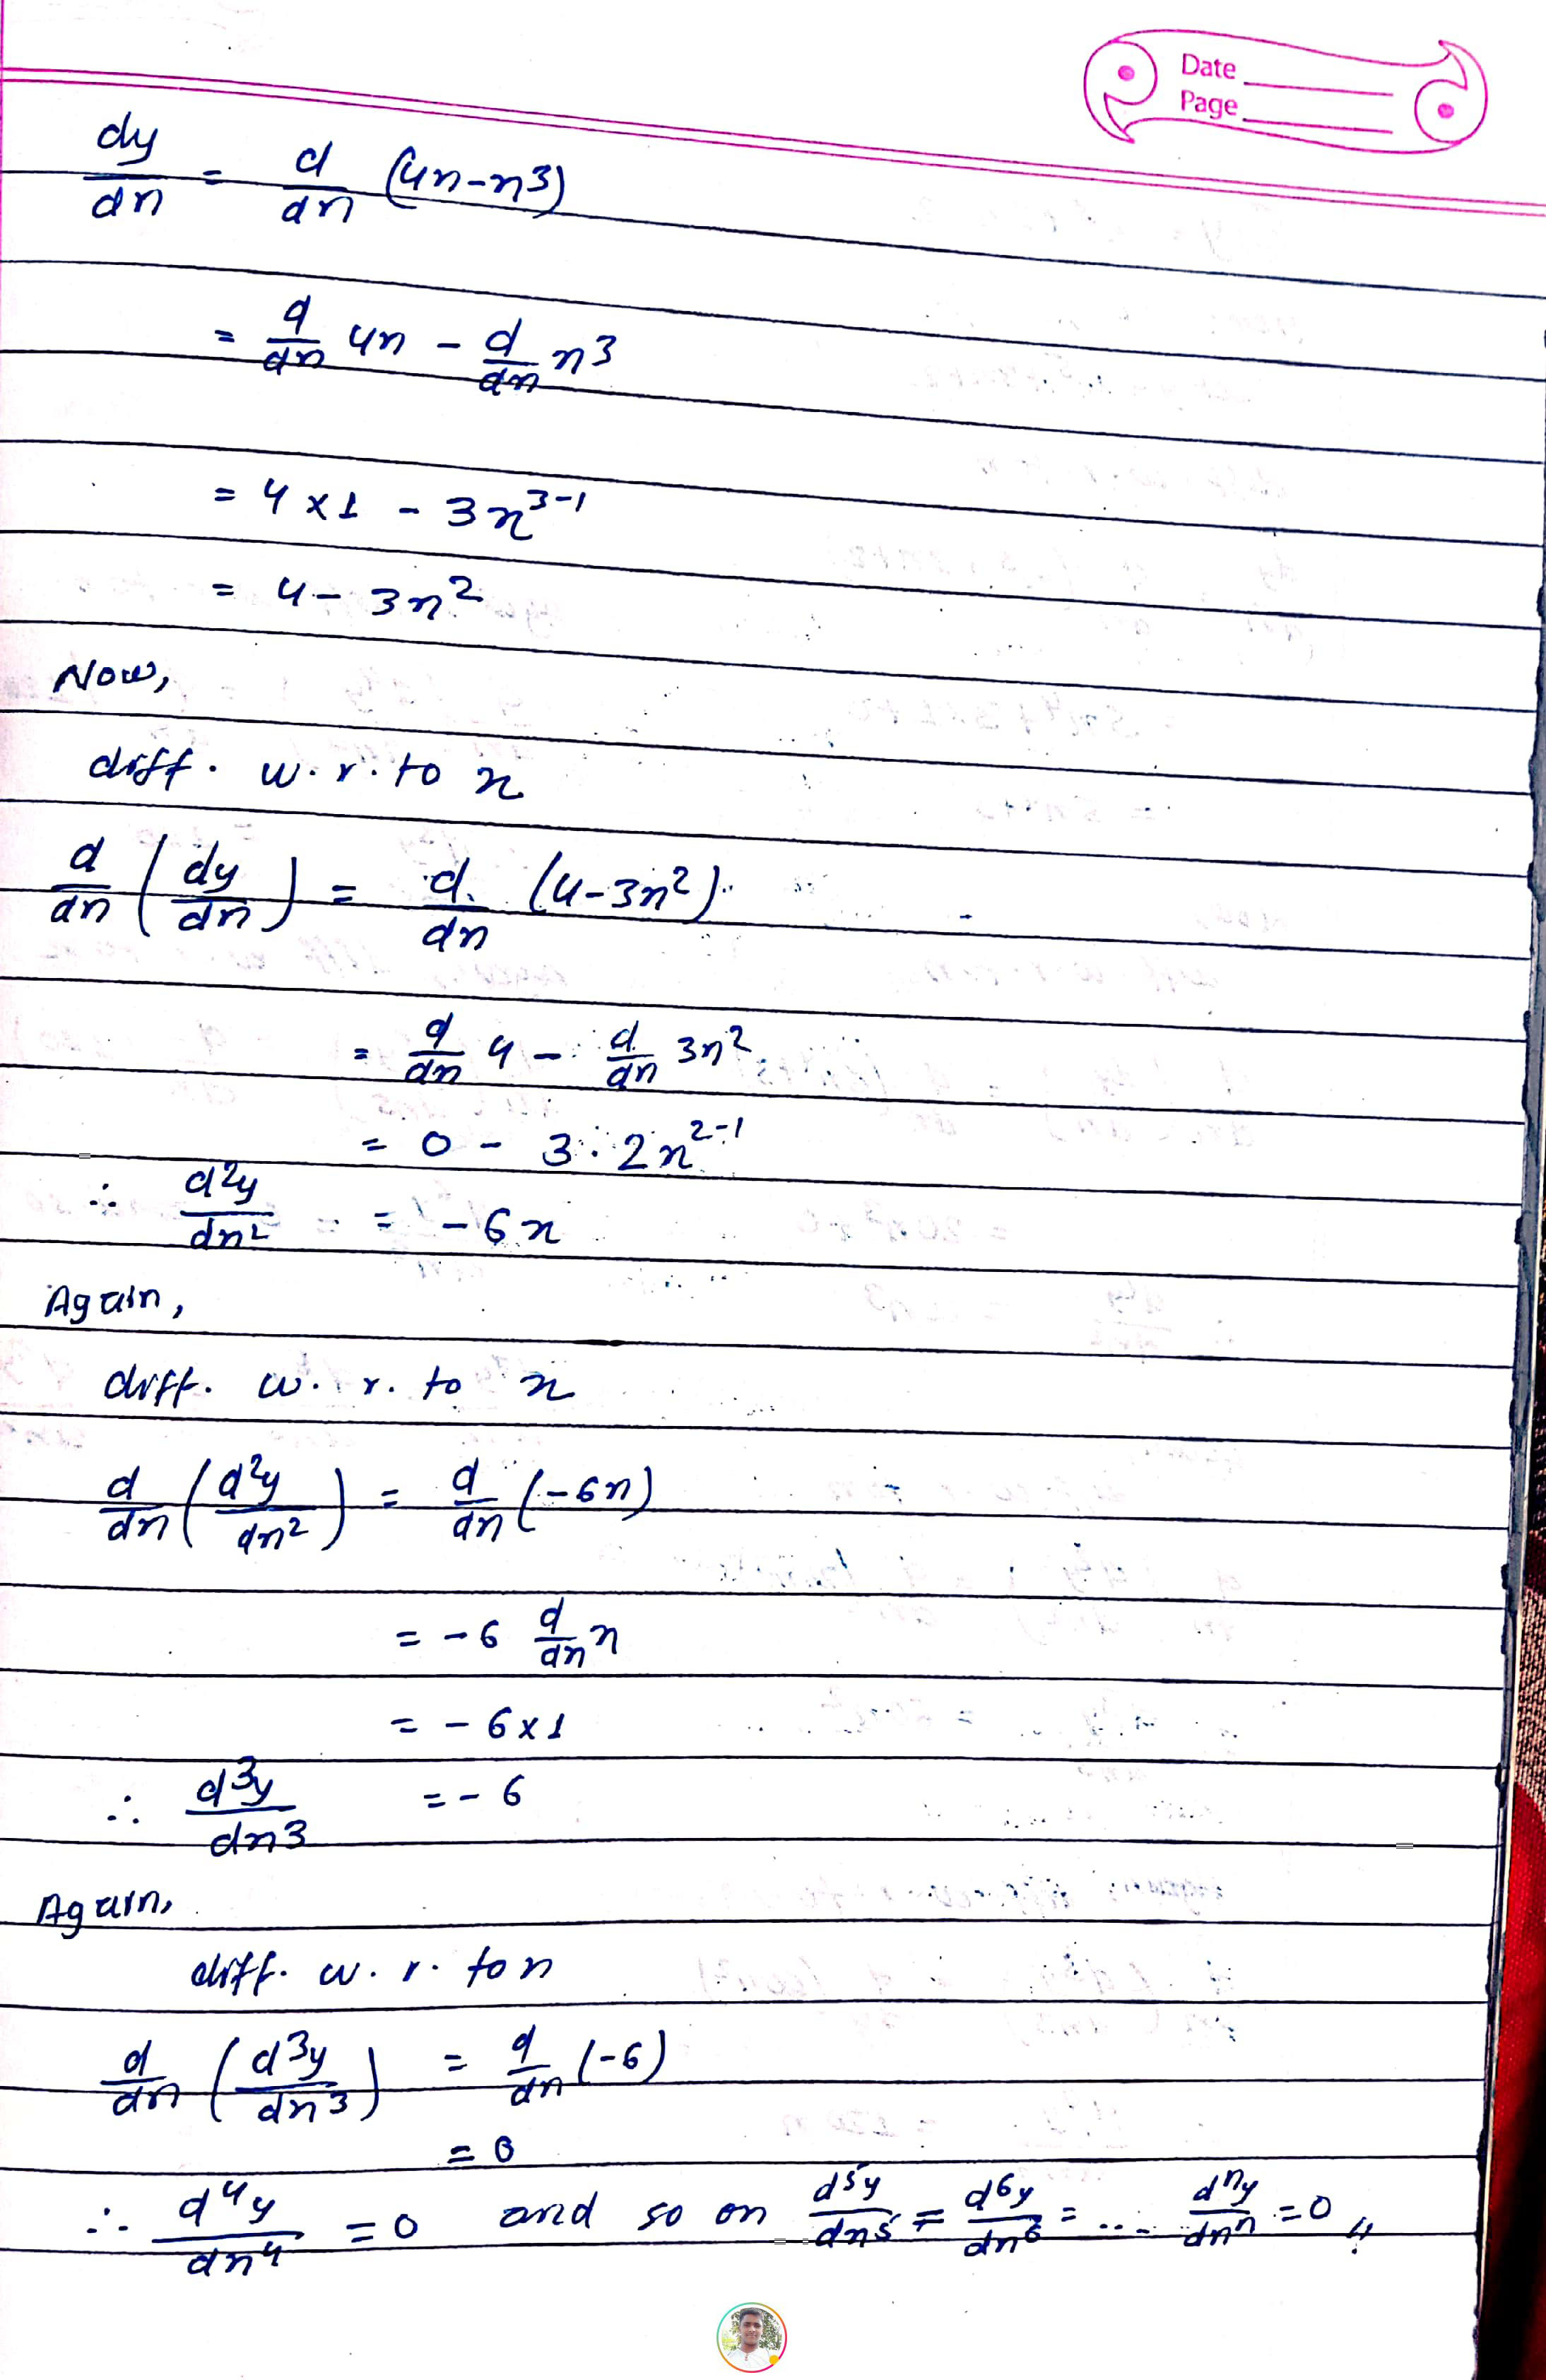 Date
Page
dy/dx = d/dx (4x-x³)
= d/dx 4x - d/dx x³
= 4×1 - 3x³⁻¹
= 4 - 3x²
Now,
diff. w.r. to x
d/dx (dy/dx) = d/dx (4-3x²)
= d/dx 4 - d/dx 3x²
= 0 - 3·2x²⁻¹
∴ d²y/dx² = -6x
Again,
diff. w. r. to x
d/dx (d²y/dx²) = d/dx (-6x)
= -6 d/dx x
= -6×1
∴ d³y/dx³ = -6
Again,
diff. w. r. to x
d/dx (d³y/dx³) = d/dx (-6)
= 0
∴ d⁴y/dx⁴ = 0 and so on d⁵y/dx⁵ = d⁶y/dx⁶ = .... dⁿy/dxⁿ = 0 //